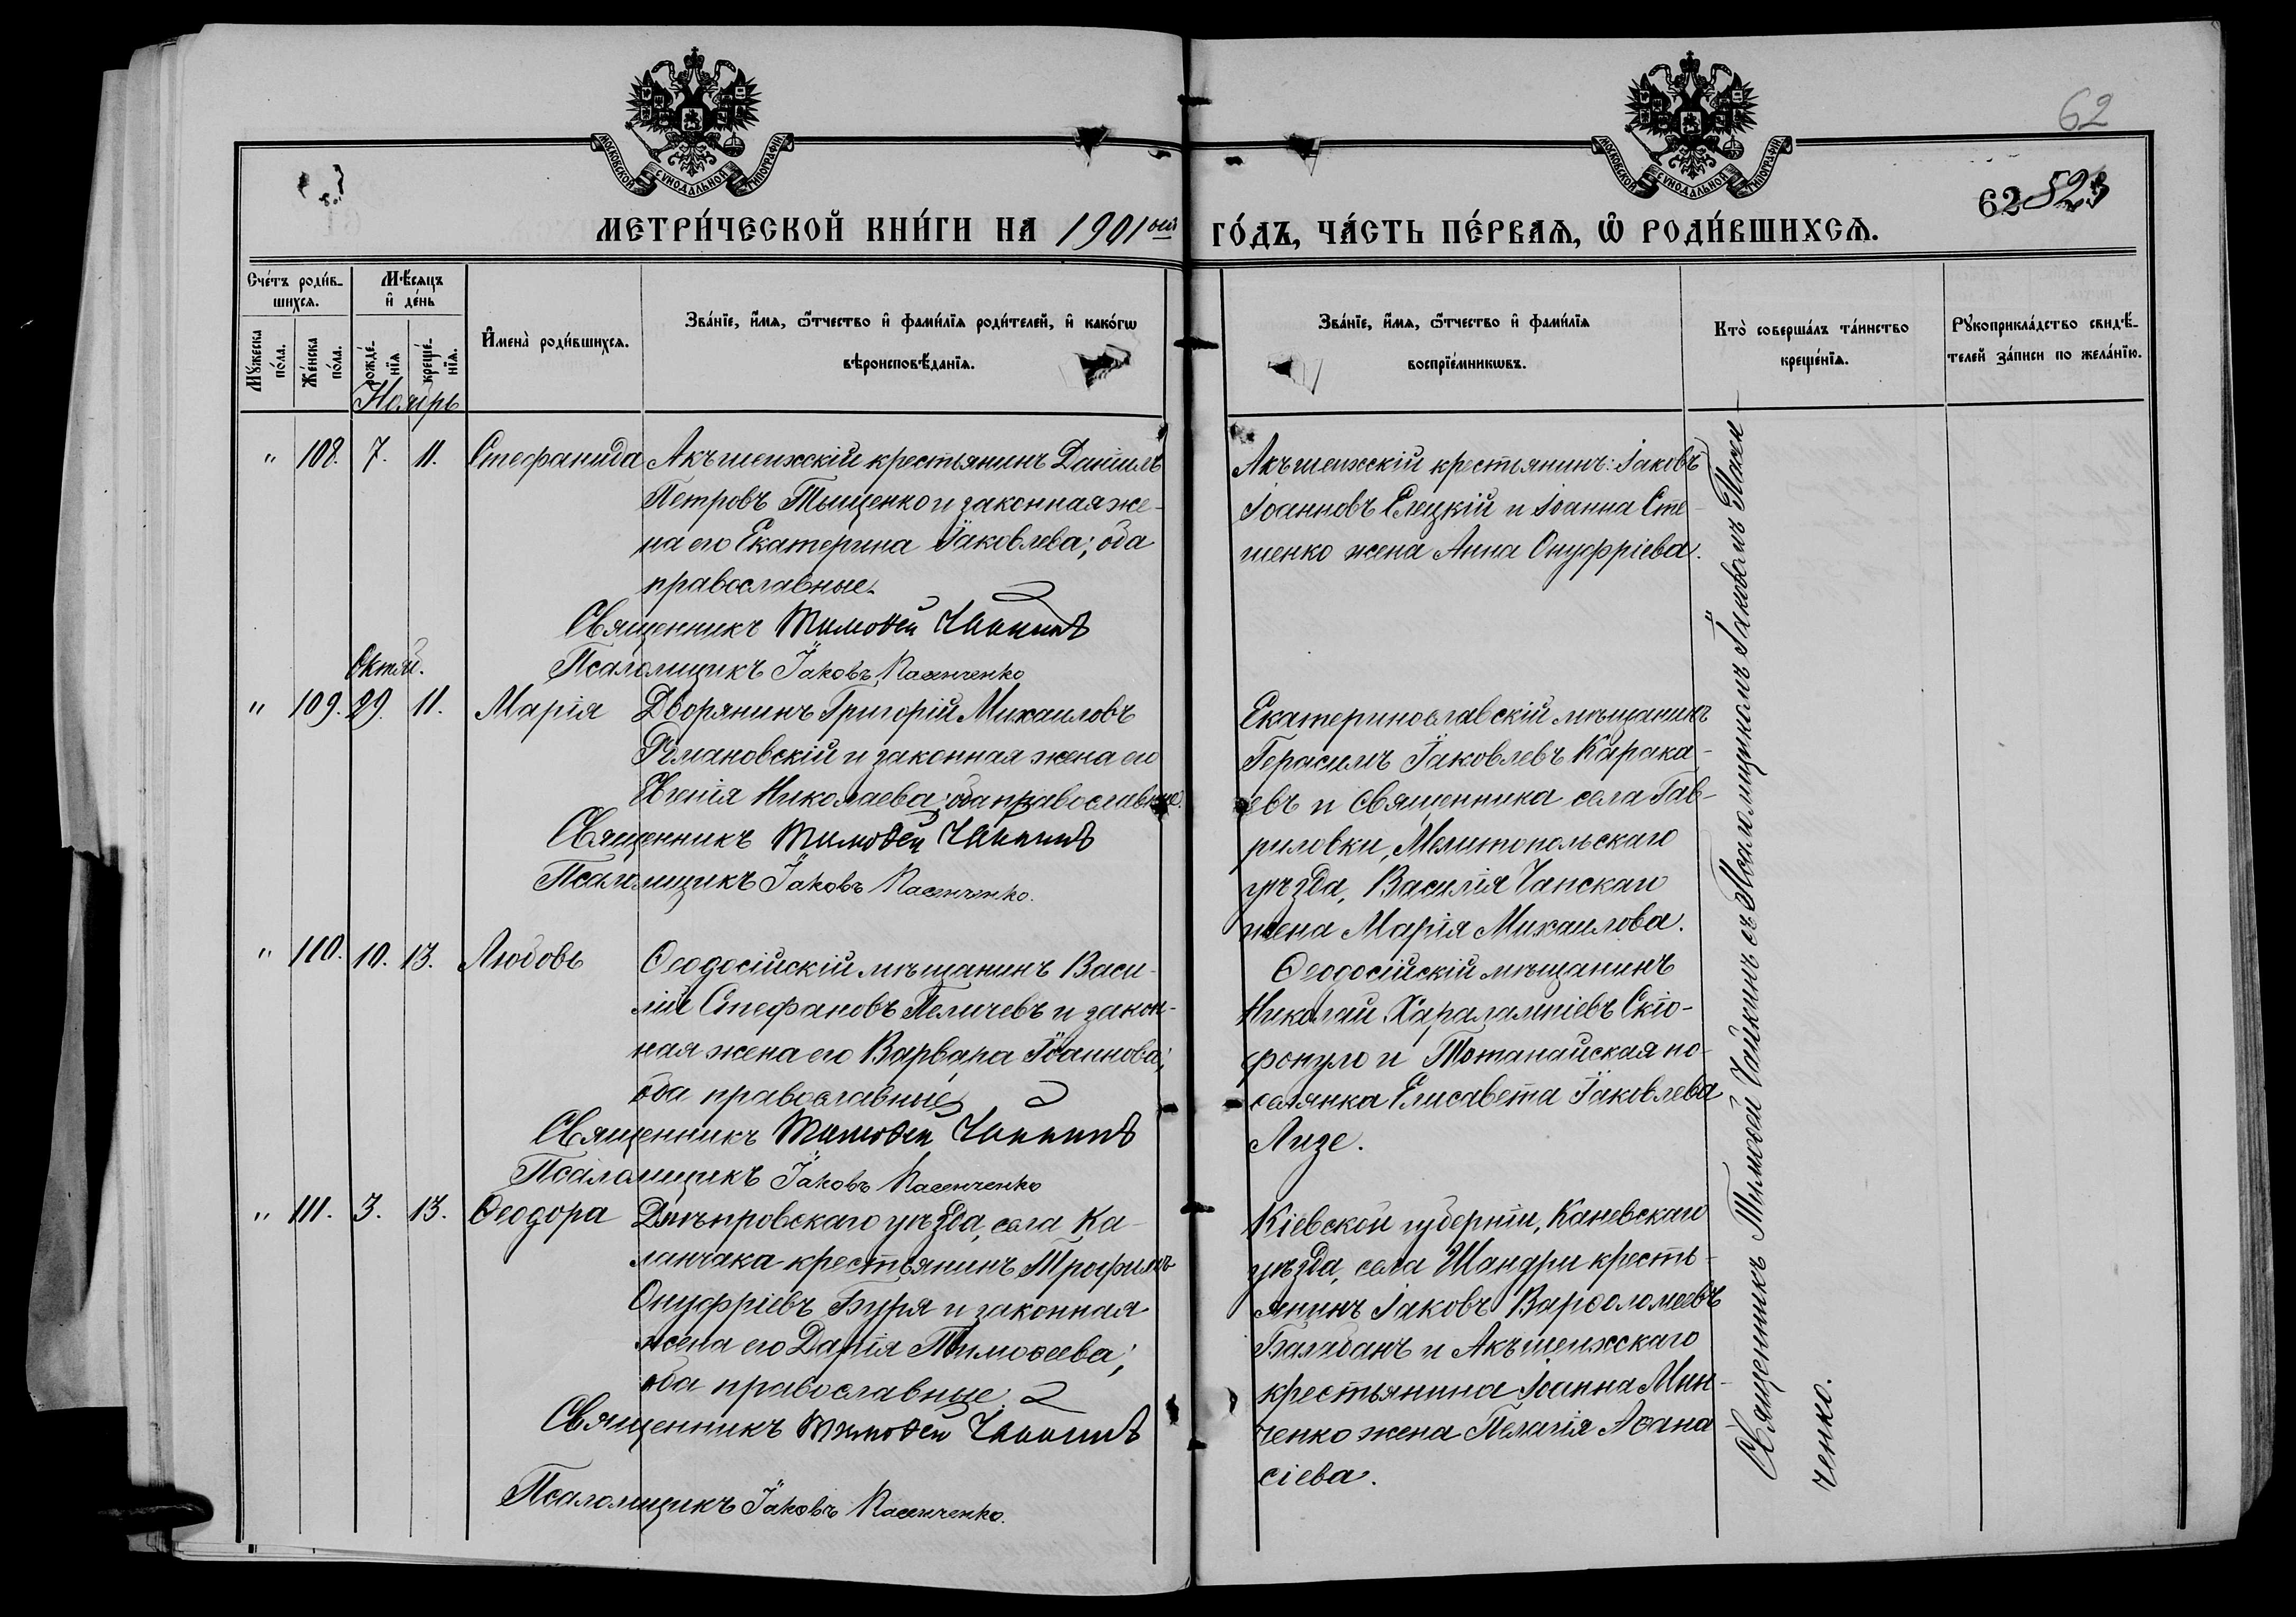 МОСКОВСКОЙ СУНОДАЛЬНОЙ ТИПОГРАФІИ
МОСКОВСКОЙ СУНОДАЛЬНОЙ ТИПОГРАФІИ
62
62 523
МЕТРИ́ЧЕСКОЙ КНИ́ГИ НА 1901 ГО́ДЪ, ЧА́СТЬ ПЕ́РВАЯ, Ѡ҆ РОДИ́ВШИХСЯ.
Сче́тъ роди́в-
шихся.
Мꙋ́жеска по́ла.
Же́нска по́ла.
Мѣ́сяцъ
и҆ де́нь
рожде́-нїя
креще́-нїя.
И҆мена̀ роди́вшихся.
Зва́нїе, и҆́мя, ѻ҆́тчество и҆ фами́лїя роди́телей, и҆ како́гѡ
вѣроисповѣ́данїя.
Зва́нїе, и҆́мя, ѻ҆́тчество и҆ фами́лїя
воспрїе́мникѡвъ.
Кто̀ соверша́лъ та́инство
креще́нїя.
Рꙋкоприкла́дство свидѣ́-
телей за́писи по жела́нїю.
Ноябрь
" 108. 7. 11. Стефанида
Акъшеихскій крестьянинъ Даніилъ
Петровъ Тыщенко и законная же-
на его Екатерина Іаковлева; оба
православные.
Священникъ Тимоѳей Чайкинъ
Псаломщикъ Іаковъ Пасенченко
Акъшеихскій крестьянинъ: Іаковъ
Іоанновъ Елецкій и Іоанна Сте-
шенко жена Анна Онуфріева.
Октяб.
" 109. 29. 11. Марія
Дворянинъ Григорій Михаиловъ
и законная жена его
Евгенія Николаева; оба православные.
Священникъ Тимоѳей Чайкинъ
Псаломщикъ Іаковъ Пасенченко.
Екатеринославскій мѣщанинъ
Герасимъ Іаковлевъ Карака-
евъ и Священника села Гав-
риловки, Мелитопольскаго
уѣзда, Василія Чапскаго
жена Марія Михаилова.
" 110. 10. 13. Любовь
Ѳеодосійскій мѣщанинъ Васи-
лій Стефановъ Пеличевъ и закон-
ная жена его Варвара Іоаннова;
оба православные
Священникъ Тимоѳей Чайкинъ
Псаломщикъ Іаковъ Пасенченко
Ѳеодосійскій мѣщанинъ
Николай Харалампіевъ Скіо-
фокуло и Тотанайская по-
селянка Елисавета Іаковлева
Лизе.
" 111. 3. 13. Ѳеодора
Днѣпровскаго уѣзда, села Ка-
ланчака крестьянинъ Трофимъ
Онуфріевъ Буря и законная
жена его Дарія Тимоѳеева;
оба православные.
Священникъ Тимоѳей Чайкинъ
Псаломщикъ Іаковъ Пасенченко.
Кіевской губерніи, Каневскаго
уѣзда, села Шандри кресть-
янинъ Іаковъ Варѳоломеевъ
Балабанъ и Акъшеихскаго
крестьянина Іоанна Мин-
ченко жена Пелагія Аѳана
сіева.
Священникъ Тимоѳей Чайкинъ съ Псаломщикомъ Іаковомъ Пасен
ченко.